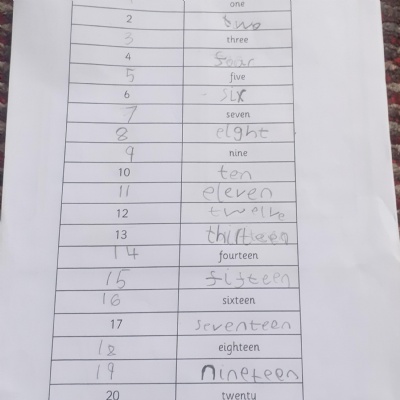 one
2 two
3 three
4 four
5 five
6 six
7 seven
8 eight
9 nine
10 ten
11 eleven
12 twelve
13 thirteen
14 fourteen
15 fifteen
16 sixteen
17 seventeen
18 eighteen
19 nineteen
20 twenty